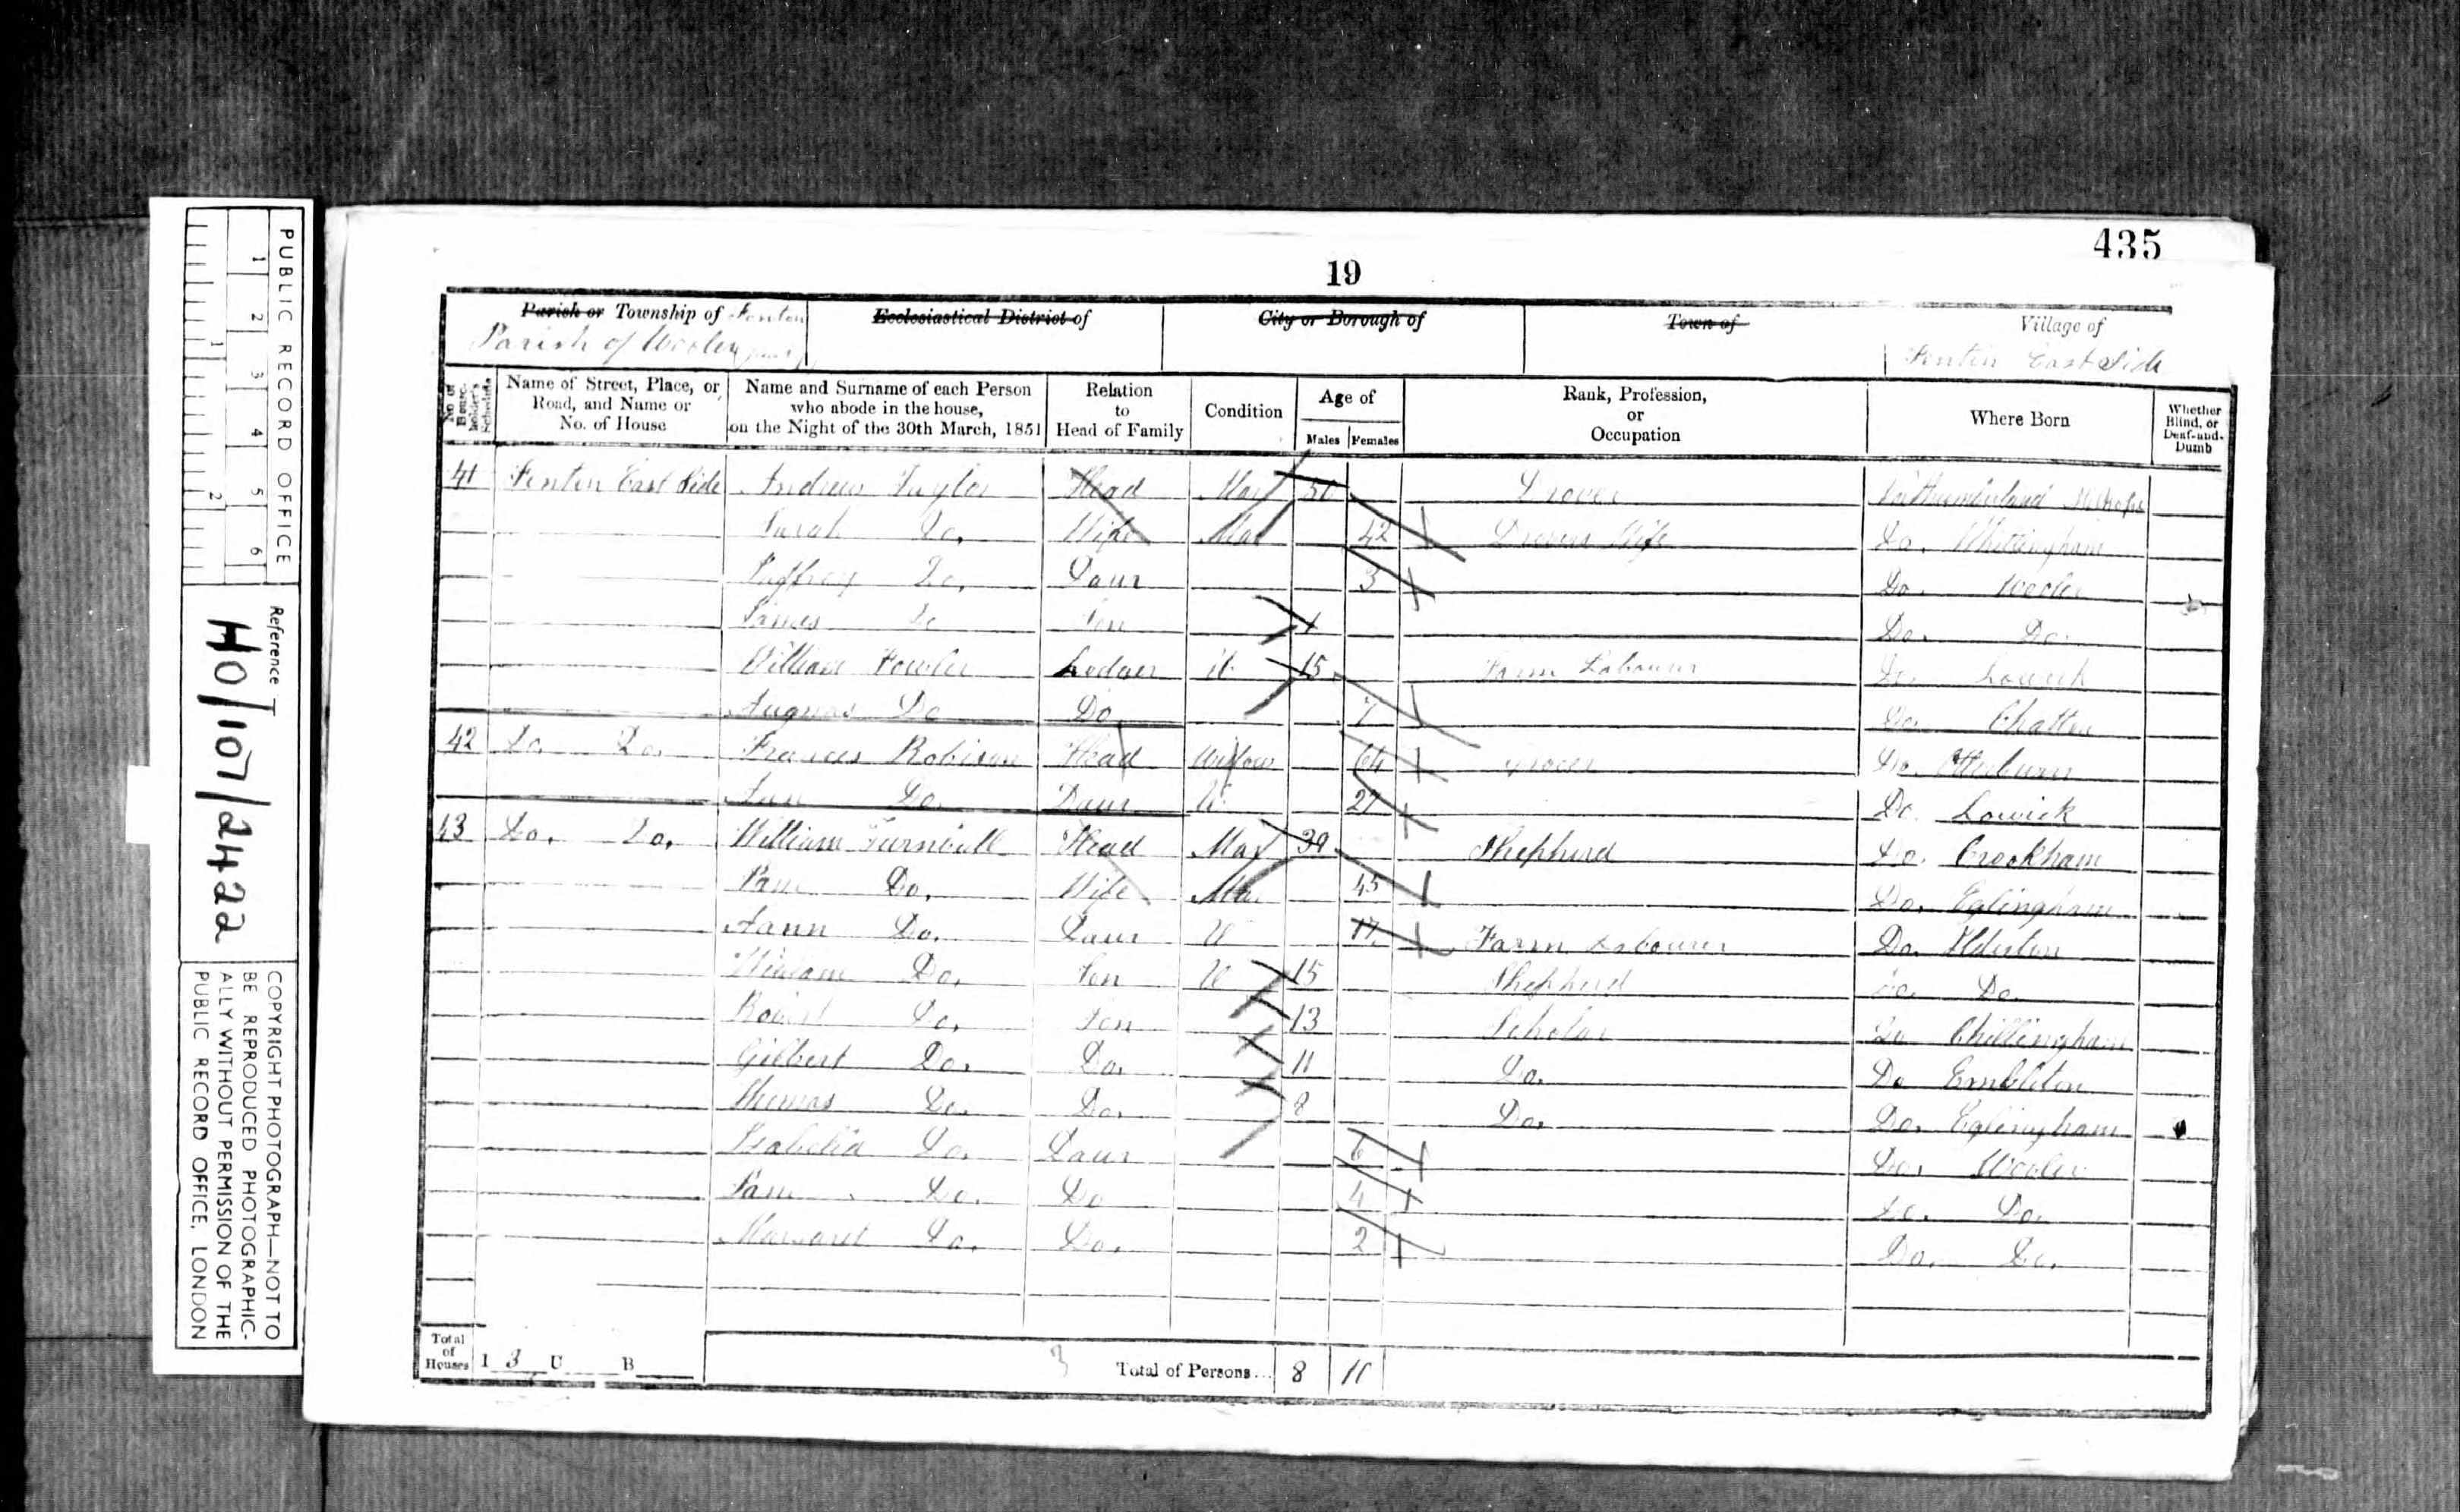 435
19
Parish or Township of Fenton
Parish of Wooler
Ecclesiastical District of
City or Borough of
Town of
Village of
Fenton East Side
No. of House-holder's Schedule
Name of Street, Place, or Road, and Name or No. of House
Name and Surname of each Person who abode in the house, on the Night of the 30th March, 1851
Relation to Head of Family
Condition
Age of
Males Females
Rank, Profession, or Occupation
Where Born
Whether Blind, or Deaf-and-Dumb
41 Fenton East Side Andrew Taylor Head Mar 50 Drover Northumberland
Sarah Do. Wife Mar 42 Drovers Wife Do. Whittingham
Do. Daur 3 Do. Wooler
James Do Son Do. Do.
William Fowler Lodger U 15 Farm Labourer Do. Lowick
Do Do 7 Do. Chatton
42 Do. Do. Frances Robison Head Widow 64 Grocer Do. Otterburn
Ann Do. Daur U 27 Do. Lowick
43 Do. Do. William Turnbull Head Mar 39 Shepherd Do. Crookham
Jane Do. Wife Mar 45 Do. Eglingham
Hann Do. Daur U 17 Farm Labourer Do. Ilderton
William Do. Son U 15 Shepherd Do. Do.
Robert Do. Son 13 Scholar Do Chillingham
Gilbert Do. Do. 11 Do. Do Embleton
Thomas Do. Do. 8 Do. Do. Eglingham
Isabella Do. Daur 6 Do. Wooler
Jane Do. Do 4 Do. Do.
Margaret Do. Do. 2 Do. Do.
Total of Houses I 3 U B
3 Total of Persons... 8 11
PUBLIC RECORD OFFICE
1 2 3 4 5 6
1 2
Reference
HO/107/2422
COPYRIGHT PHOTOGRAPH—NOT TO
BE REPRODUCED PHOTOGRAPHIC-
ALLY WITHOUT PERMISSION OF THE
PUBLIC RECORD OFFICE, LONDON